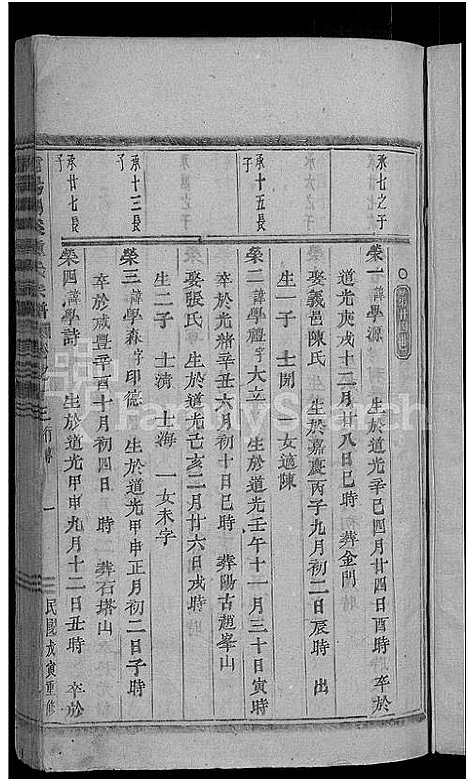 承七之子
榮一 諱學源 生於道光辛巳四月廿四日酉時 卒於
道光庚戌十二月廿八日巳時 葬金門
娶義邑陳氏 生於嘉慶丙子九月初二日辰時 出
生一子 士開 一女適陳
承十五長子
榮二 諱學禮字大立 生於道光壬午十一月三十日寅時
卒於光緒辛丑六月初十日巳時 葬陽古趙峯山
娶張氏 生於道光己亥二月廿六日戌時
生二子 士濤 士海 一女未字
承十三長子
榮三 諱學森字印德 生於道光甲申正月初二日子時
卒於咸豐辛酉十月初四日 時 葬石塔山
承廿七長子
榮四 諱學詩 生於道光甲申九月十二日丑時 卒於
行傳 一 民國戊寅重修
FamilySearch